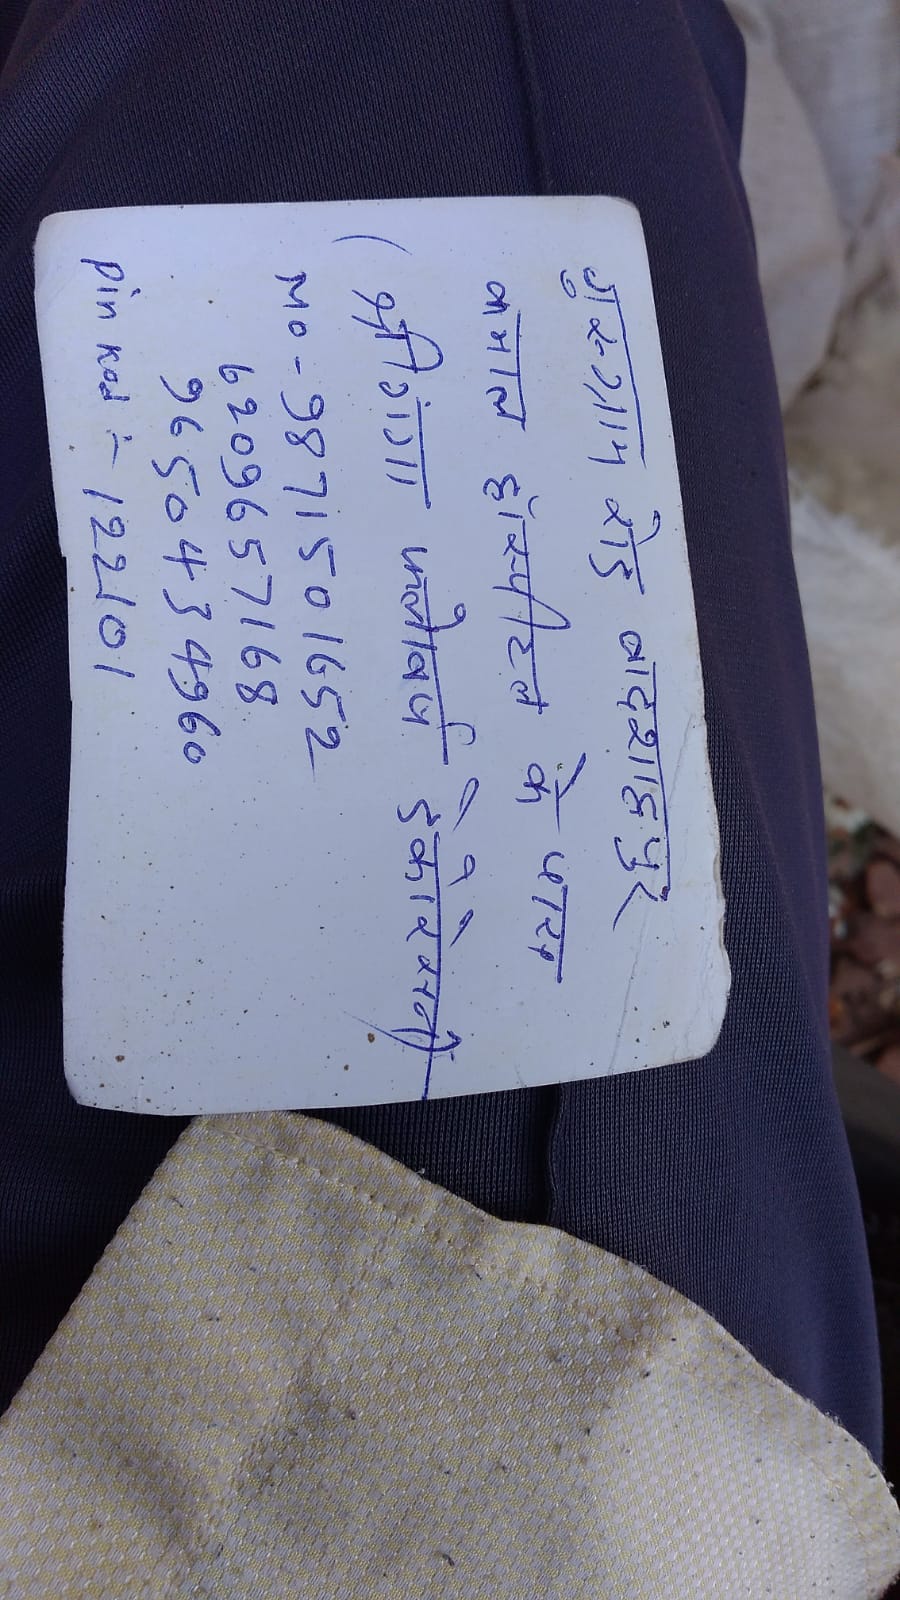 गुरूग्राम रोड़ बादशाहपुर
कमाल हॉस्पीटल के पास
( श्री गंगा फ्लोवर्प डेकोरेशन
MO - 9871501652
6209657168
9650434960
Pin kod :- 122101